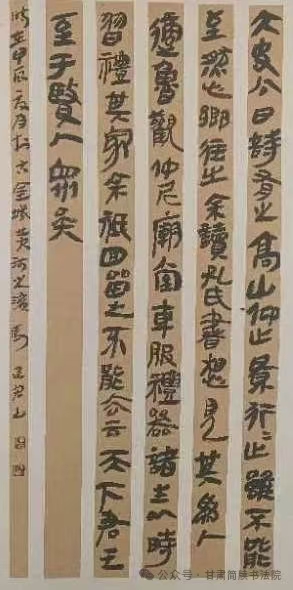 大史公曰詩有之高山仰止景行〻止雖不能
至然心鄉往之余讀孔氏書想見其為人
適魯觀仲尼廟堂車服禮器諸生以時
習禮其家余祗回留之不能去云天下君王
至于賢人眾矣
時在甲辰夏月於古金城黃河之濱
公众号 · 甘肃简牍书法院